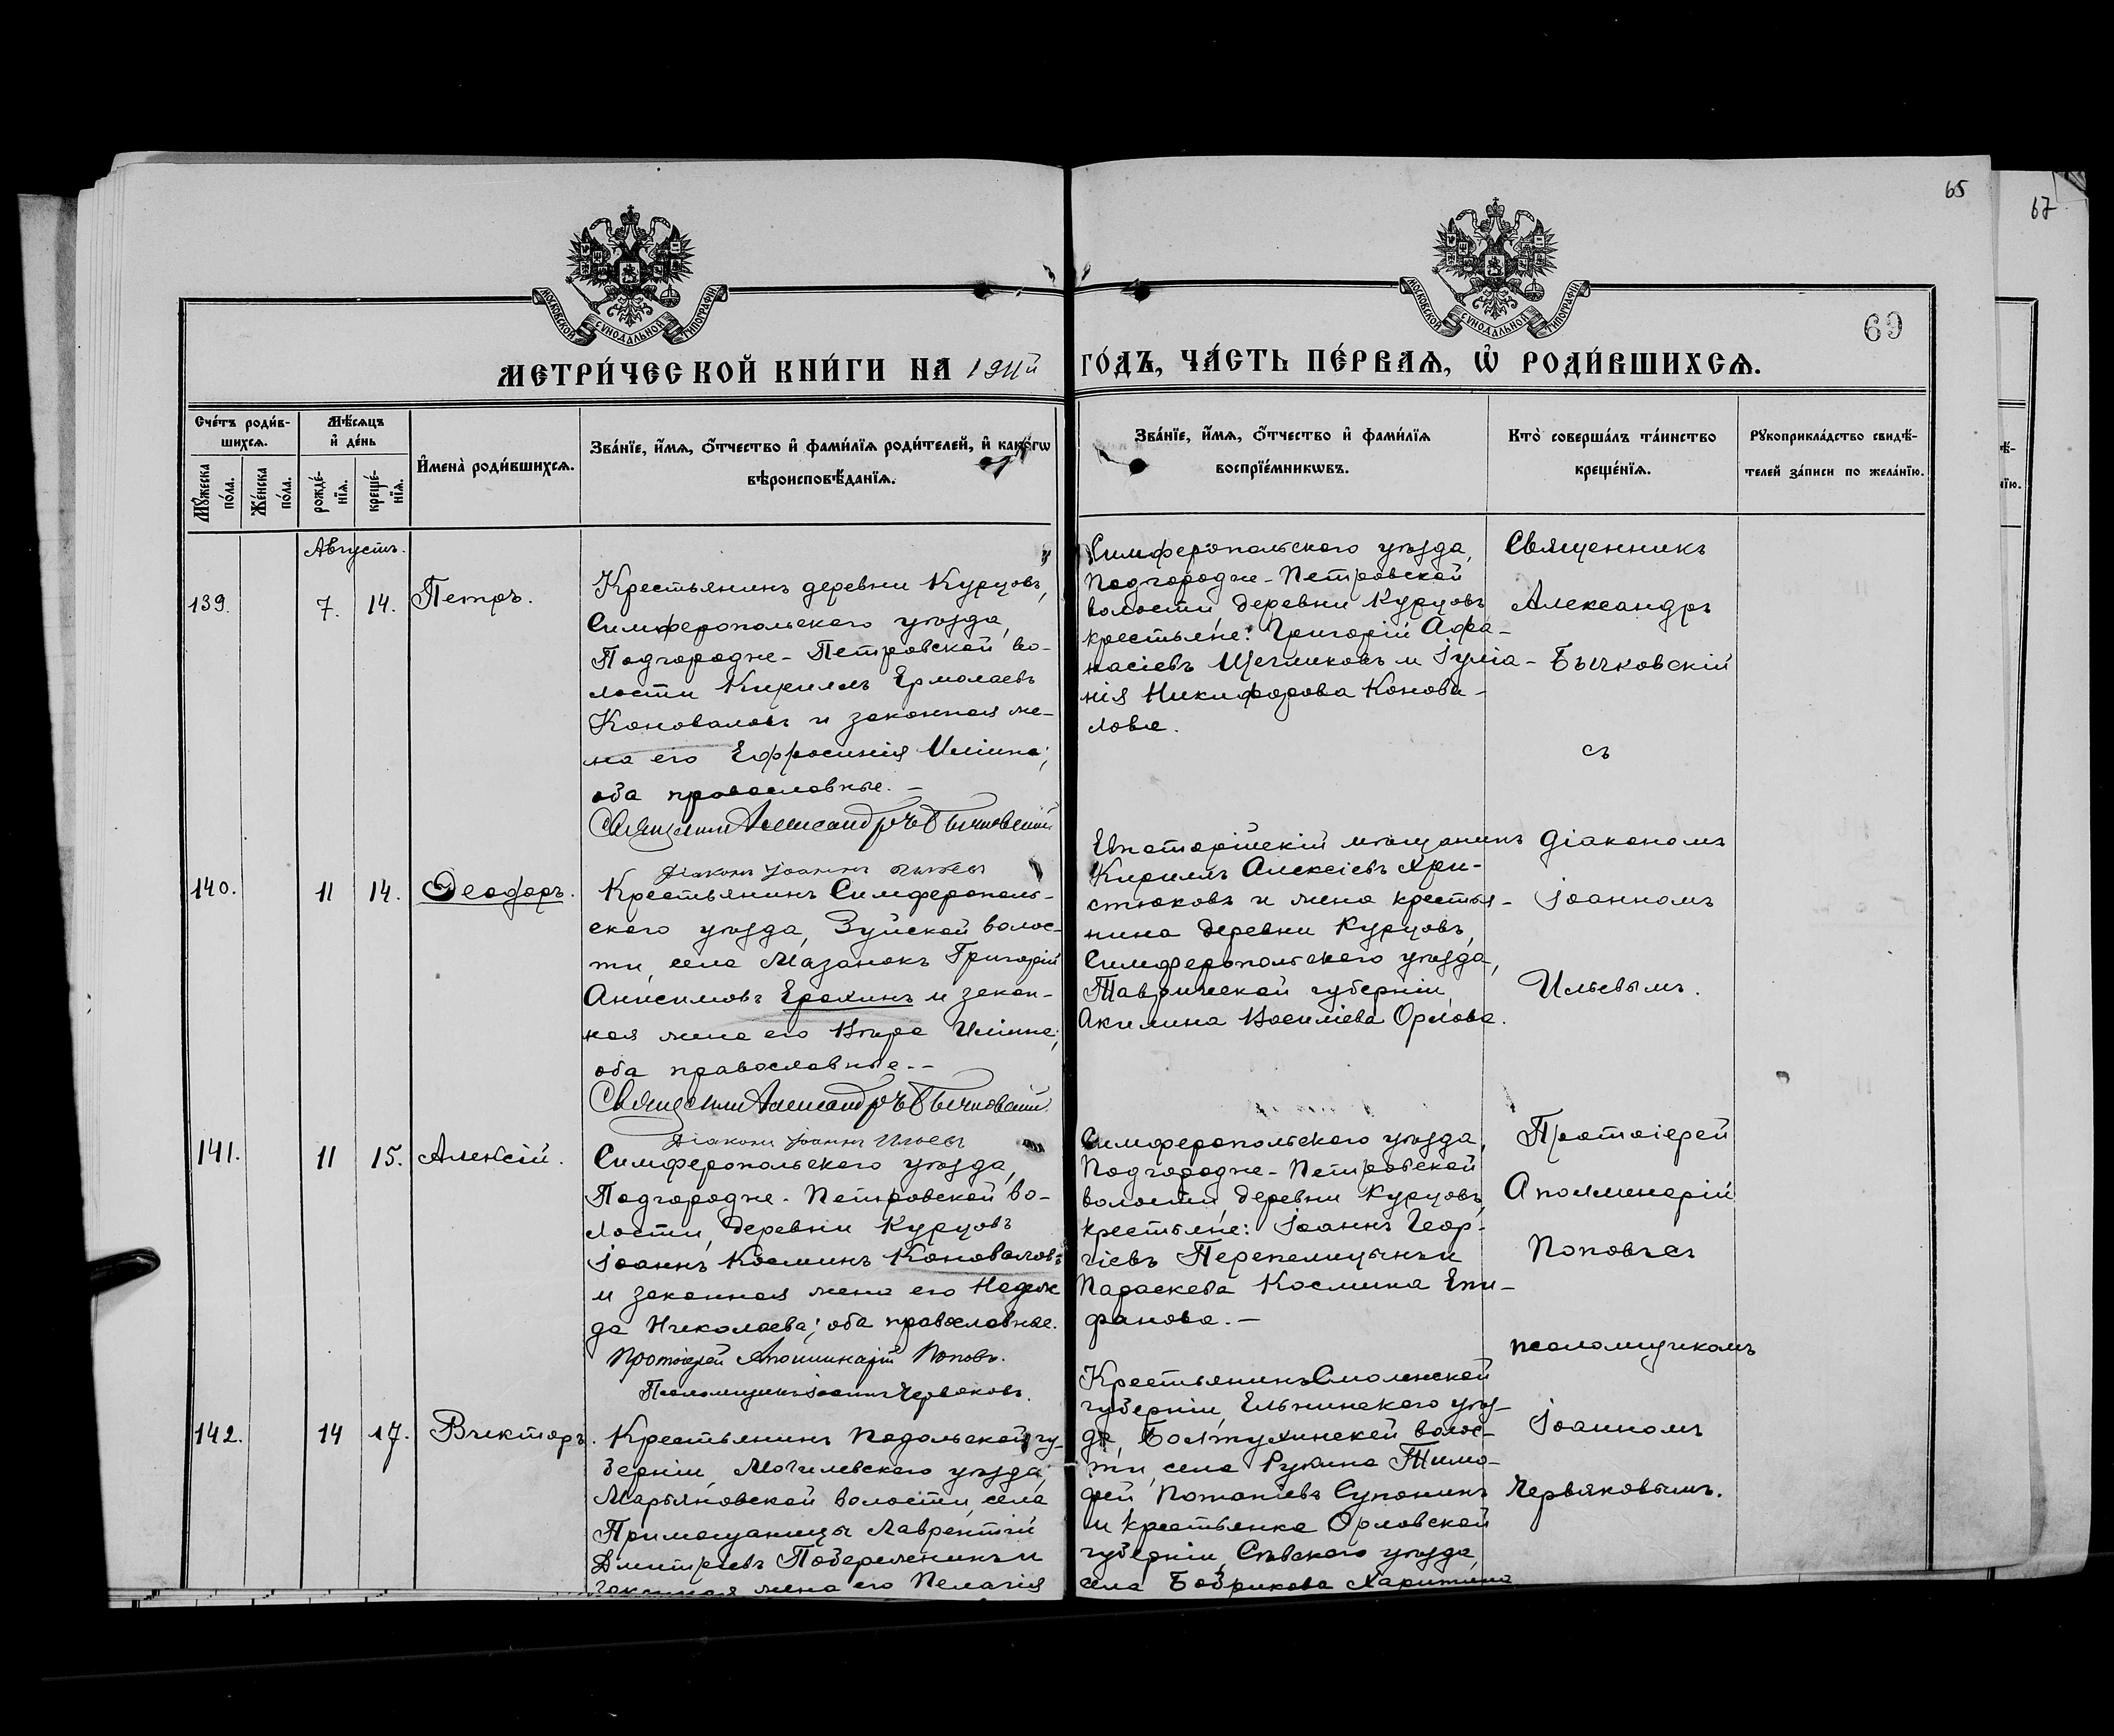 65
67
МОСКОВСКОЙ СѴНОДАЛЬНОЙ ТИПОГРАФІИ
МОСКОВСКОЙ СѴНОДАЛЬНОЙ ТИПОГРАФІИ
69
МЕТРИ́ЧЕСКОЙ КНИ́ГИ НА 1911й ГО́ДЪ, ЧА́СТЬ ПЕ́РВАѦ, Ѡ РОДИ́ВШИХСѦ.
Сче́тъ роди́в-
шихсѧ.
Мꙋ́жеска
по́ла.
Же́нска
по́ла.
Мѣ́сѧцъ
и҆ де́нь
рожде́-
нїѧ.
креще́-
нїѧ.
И҆мена̀ роди́вшихсѧ.
Зва́нїе, и҆́мѧ, ѻ҆́тчество и҆ фами́лїѧ роди́телей, и҆ како́гѡ
вѣроисповѣ́данїѧ.
Зва́нїе, и҆́мѧ, ѻ҆́тчество и҆ фами́лїѧ
воспрїе́мникѡвъ.
Кто̀ соверша́лъ та́инство
креще́нїѧ.
Рꙋкоприкла́дство свидѣ́-
телей за́писи по жела́нїю.
Августъ.
139.
7.
14.
Петръ.
Крестьянинъ деревни Курцовъ,
Симферопольскаго уѣзда,
Подгородне-Петровской во-
лости Кириллъ Ермолаевъ
Коноваловъ и законная же-
на его Ефросинія Иліина;
оба православные. —
Священникъ Александръ Бычковскій
Діаконъ Іоаннъ Ильевъ
Симферопольскаго уѣзда,
Подгородне-Петровской
волости, деревни Курцовъ
крестьяне: Григорій Афа-
насіевъ Щегликовъ и Іуліа-
нія Никифорова Конова-
лова.
Священникъ
Александръ
Бычковскій
съ
140.
11
14.
Ѳеодоръ.
Крестьянинъ Симферополь-
скаго уѣзда, Зуйской волос-
ти, села Мазанокъ Григорій
Анисимовъ Ерохинъ и закон-
ная жена его Вѣра Иліина;
оба православные. —
Священникъ Александръ Бычковскій
Діаконъ Іоаннъ Ильевъ
Евпаторійскій мѣщанинъ
Кириллъ Алексіевъ Хри-
стюковъ и жена крестья-
нина деревни Курцовъ,
Симферопольскаго уѣзда,
Таврической губерніи,
Акилина Василіева Орлова.
діакономъ
Іоанномъ
Ильевымъ.
141.
11
15.
Алексій.
Симферопольскаго уѣзда,
Подгородне-Петровской во-
лости, деревни Курцовъ
Іоаннъ Косминъ Коноваловъ
и законная жена его Надеж
да Николаева; оба православные.
Протоіерей Аполлинарій Поповъ.
Псаломщикъ Іоаннъ Червяковъ.
Симферопольскаго уѣзда,
Подгородне-Петровской
волости, деревни Курцовъ,
крестьяне: Іоаннъ Геор-
гіевъ Перепелицынъ и
Параскева Космина Епи-
фанова. —
Протоіерей
Аполлинарій
Поповъ съ
псаломщикомъ
Іоанномъ
Червяковымъ.
142.
14
17.
Викторъ.
Крестьянинъ Подольской гу-
берніи, Могилевскаго уѣзда,
Марьяновской волости, села
Примощаницы Лаврентій
Димитріевъ Побережникъ и
законная жена его Пелагія
Крестьянинъ Смоленской
губерніи, Ельнинскаго уѣз-
да, Болтухинской волос-
ти, села Рукина Тимо-
фей Потапіевъ Супонинъ
и крестьянка Орловской
губерніи, Сѣвскаго уѣзда,
села Бобрикова Харитина